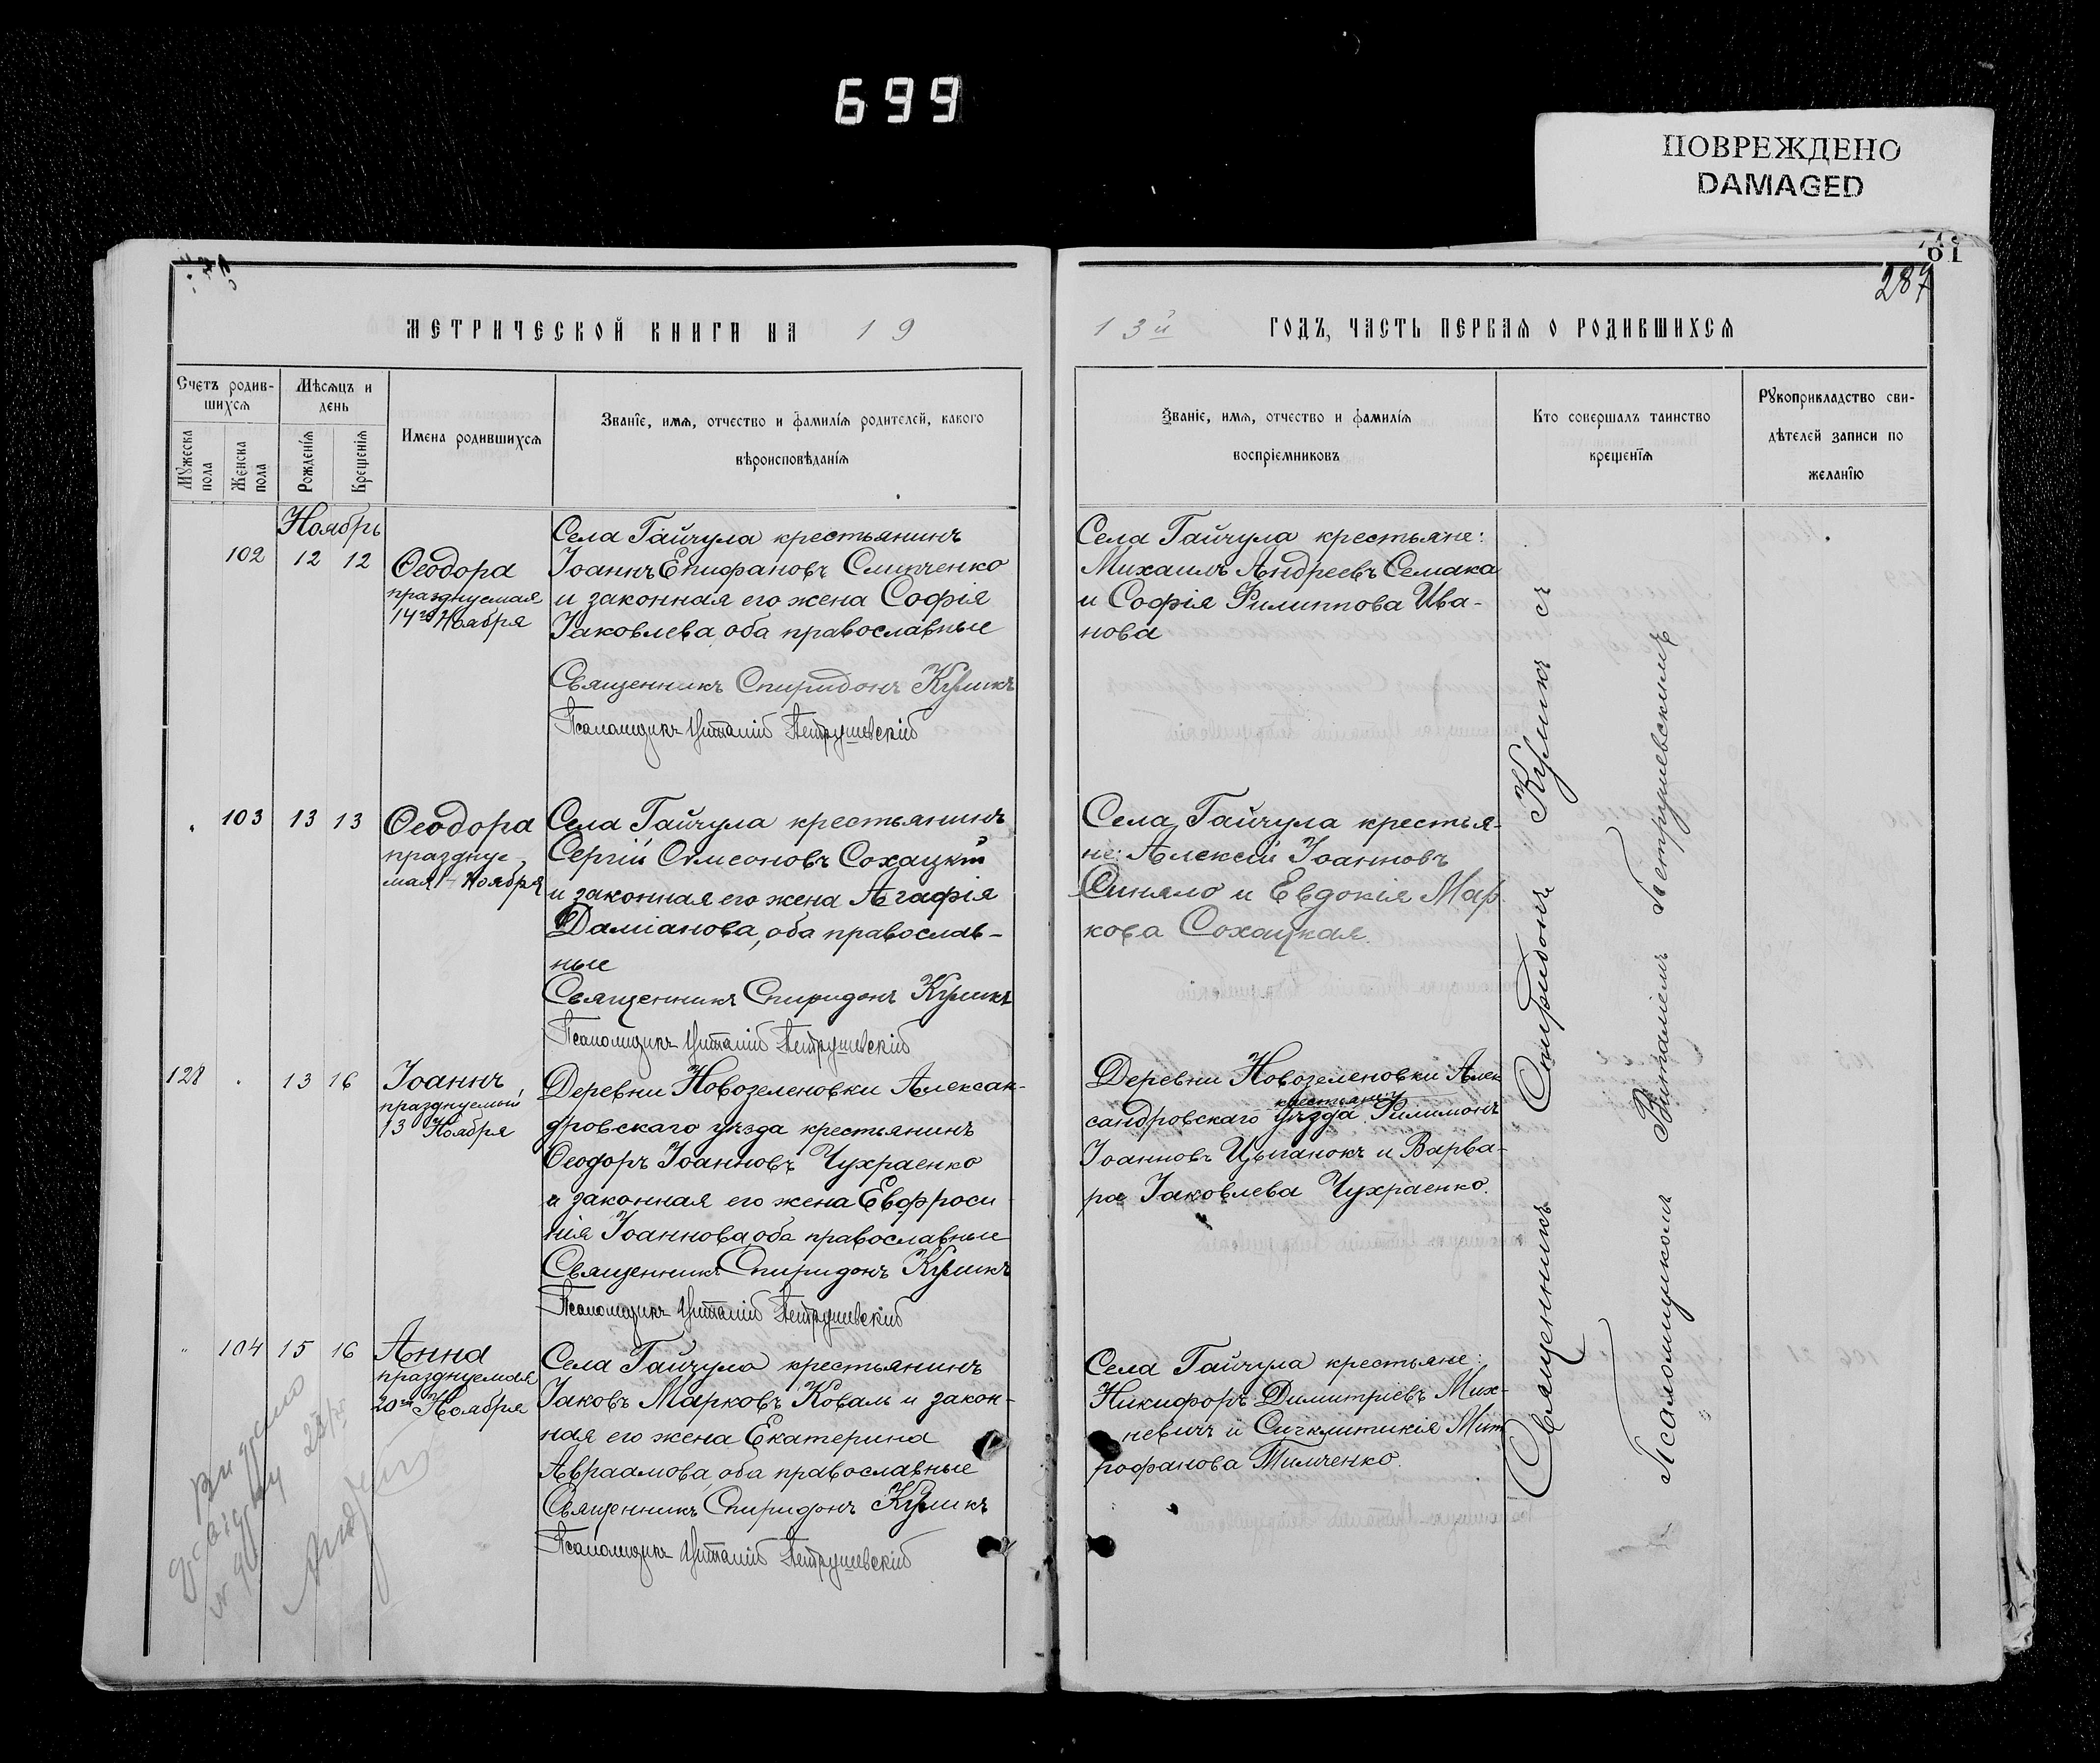 699
ПОВРЕЖДЕНО
DAMAGED
61
287
МЕТРИЧЕСКОЙ КНИГИ НА 19
13й ГОДЪ, ЧАСТЬ ПЕРВАЯ О РОДИВШИХСЯ
Счетъ родив-
шихся
Мѣсяцъ и
день
Мужеска
пола
Женска
пола
Рожденія
Крещенія
Имена родившихся
Званіе, имя, отчество и фамилія родителей, какого
вѣроисповѣданія
Званіе, имя, отчество и фамилія
воспріемниковъ
Кто совершалъ таинство
крещенія
Рукоприкладство сви-
дѣтелей записи по
желанію
Ноябрь
102 12 12
Ѳеодора
празднуемая
14го Ноября
Села Гайчула крестьянинъ
Іоаннъ Епифановъ Слипченко
и законная его жена Софія
Іаковлева, оба православные
Священникъ Спиридонъ Куликъ
Псаломщикъ Виталій Петрушевскій
Села Гайчула крестьяне:
Михаилъ Андреевъ Семака
и Софія Филиппова Ива-
нова
103 13 13
Ѳеодора
празднуе
мая 14 Ноября
Села Гайчула крестьянинъ
Сергій Сѵмеоновъ Сохацкій
и законная его жена Агафія
Даміанова, оба православ-
ные
Священникъ Спиридонъ Куликъ
Псаломщикъ Виталій Петрушевскій
Села Гайчула крестья-
не: Алексій Іоанновъ
Синяло и Евдокія Мар
кова Сохацкая.
128 13 16
Іоаннъ
празднуемый
13 Ноября
Деревни Новозеленовки Алексан-
дровскаго уѣзда крестьянинъ
Ѳеодоръ Іоанновъ Чухраенко
и законная его жена Евфроси
нія Іоаннова, оба православные
Священникъ Спиридонъ Куликъ
Псаломщикъ Виталій Петрушевскій
Деревни Новозеленовки Алек
крестьянинъ
сандровскаго уѣзда Филимонъ
Іоанновъ Цыганокъ и Варва-
ра Іаковлева Чухраенко.
104 15 16
Анна
празднуемая
20го Ноября
Села Гайчула крестьянинъ
Іаковъ Марковъ Коваль и закон-
ная его жена Екатерина
Авраамова, оба православные
Священникъ Спиридонъ Куликъ
Псаломщикъ Виталій Петрушевскій
Села Гайчула крестьяне:
Никифоръ Димитріевъ Мих-
невичъ и Сигклитикія Мит
рофанова Тимченко.
Священникъ Спиридонъ Куликъ съ
Псаломщикомъ Виталіемъ Петрушевскимъ
Видано